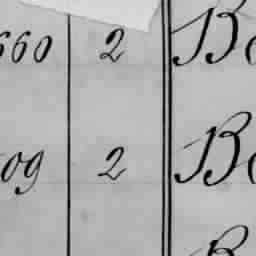 660 2 B
09 2 B